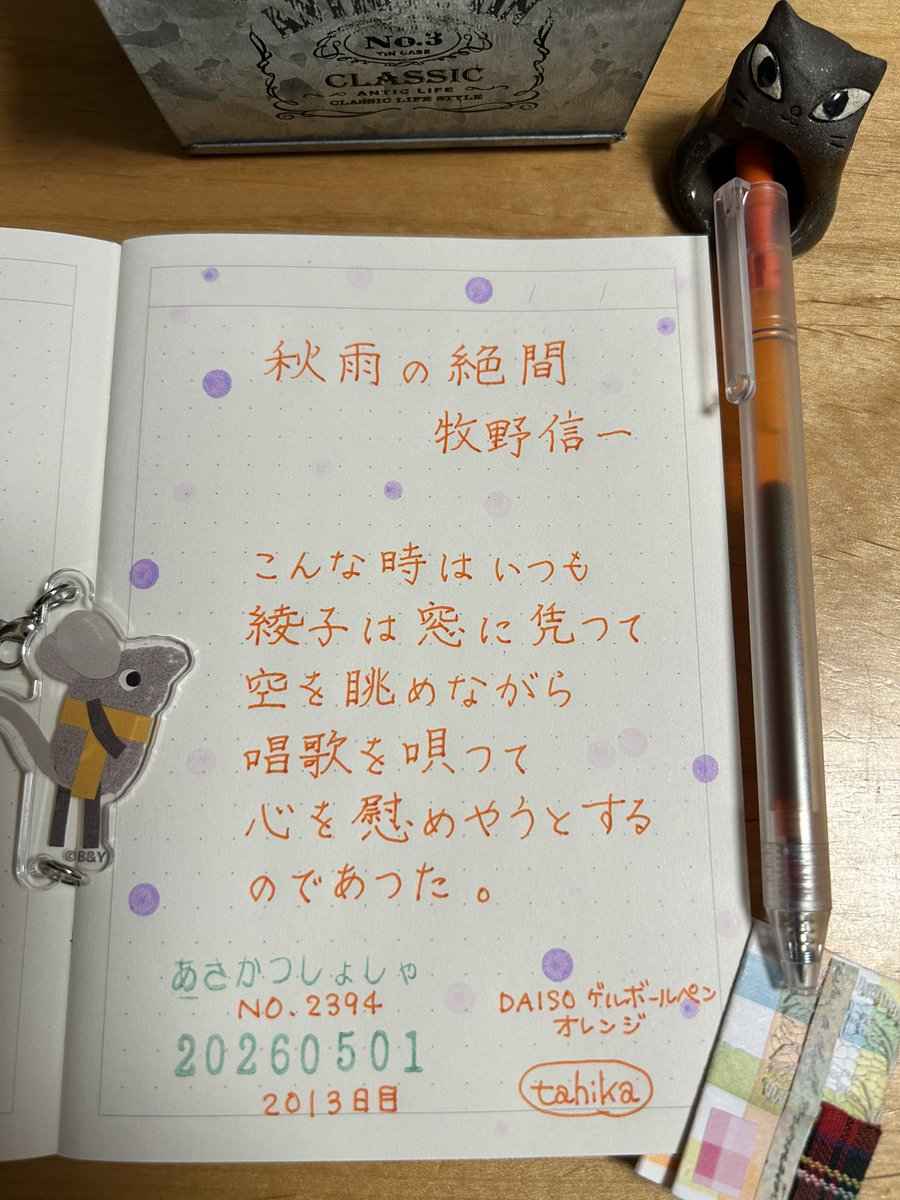 No.3
TIN CASE
CLASSIC
ANTIC LIFE
CLASSIC LIFE STYLE
秋雨の絶間
牧野信一
こんな時はいつも
綾子は窓に凭つて
空を眺めながら
唱歌を唄つて
心を慰めやうとする
のであつた。
©B&Y
あさかつしょしゃ
NO.2394
20260501
2013日目
DAISO ゲルボールペン
オレンジ
tahika